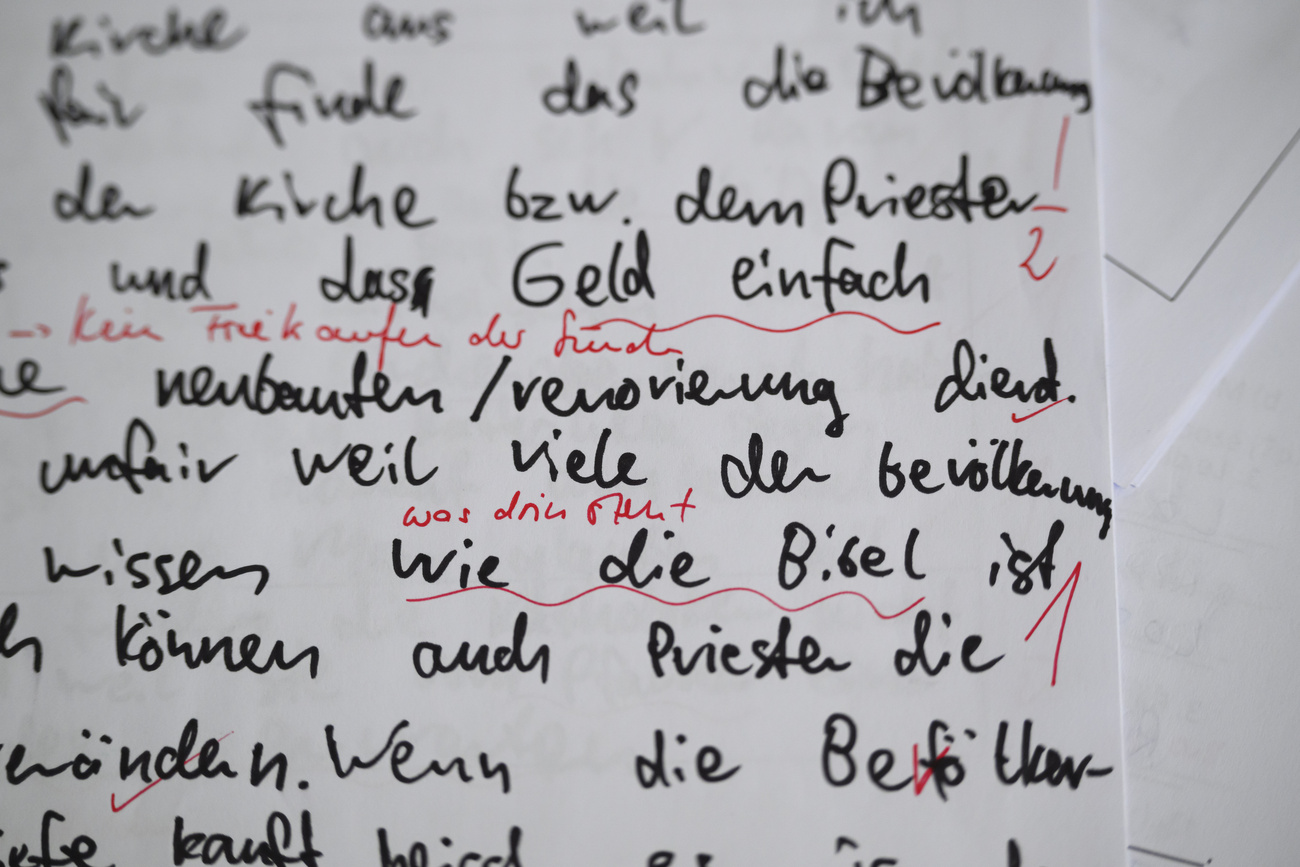 Kirche aus weil ich
fair finde das die Bevölkerung
der Kirche bzw. dem Priester
1
2
und dass Geld einfach
→ kein Freikaufen der Sünde
neubauten / renovierung dient.
unfair weil viele der bevölkerung
was drin steht
wissen wie die Bibel ist
1
können auch Priester die
verändern. Wenn die Befölker-
kauft heisst